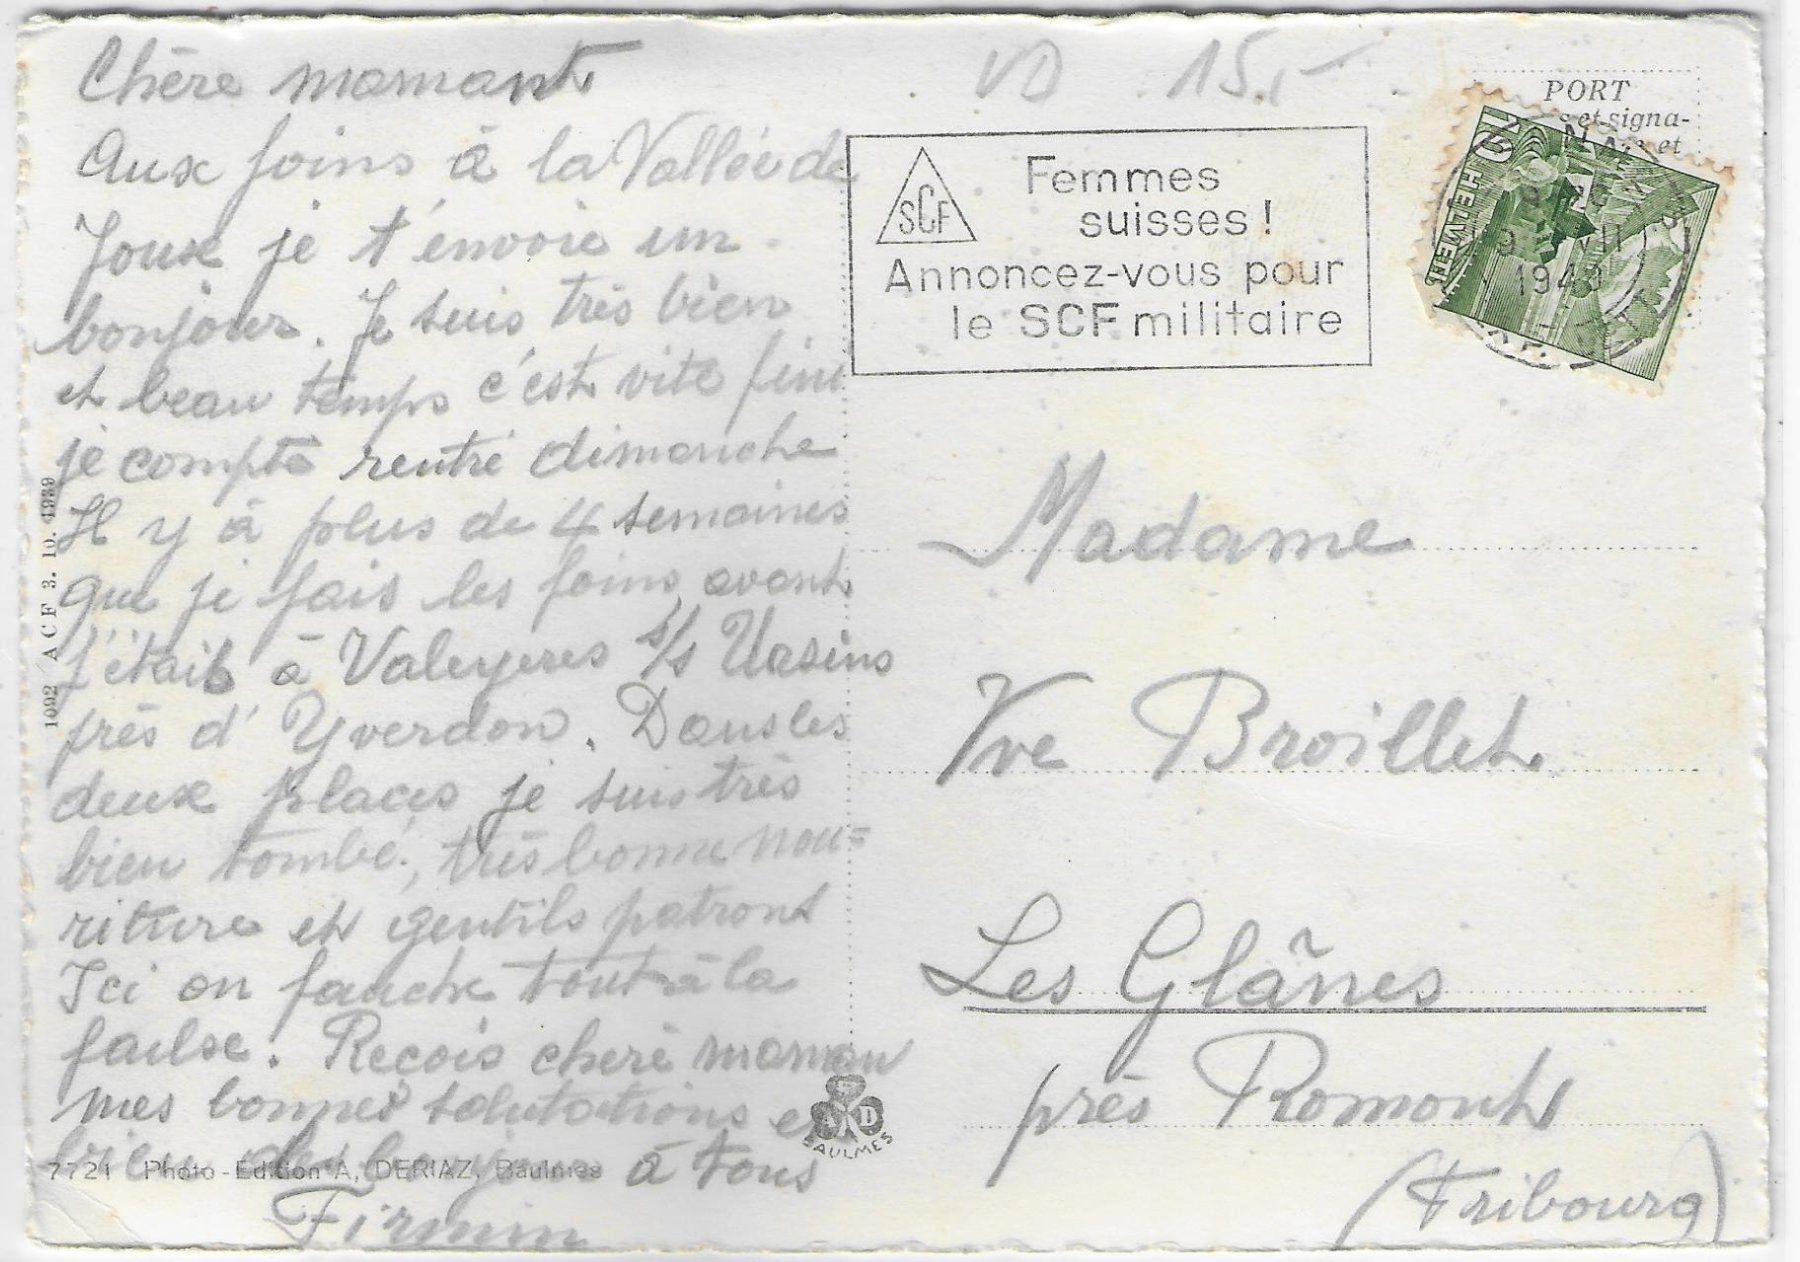 Chère mamant
Aux foins à la Vallée de
Joux je t'envoie un
bonjour. Je suis très bien
et beau temps c'est vite fini
je compte rentré dimanche
Il y à plus de 4 semaines
que je fais les foins, avant
j'étais à Valeyeres s/s Ursins
près d'Yverdon. Dans les
deux places je suis très
bien tombé, très bonne nou=
riture et gentils patront
Ici on fauche tout à la
faulse. Reçois chère maman
mes bonnes salutations et
à tous
Firmin
7721 Photo-Edition A. DERIAZ, Baulmes
1092 ACF 3. 10. 1939
A D
BAULMES
VD 15.-
SCF
Femmes
suisses!
Annoncez-vous pour
le SCF militaire
PORT
et signa-
et
HELVETIA
10
9 VII
1943
Madame
Vve Broillet
Les Glânes
près Romont
(Fribourg)